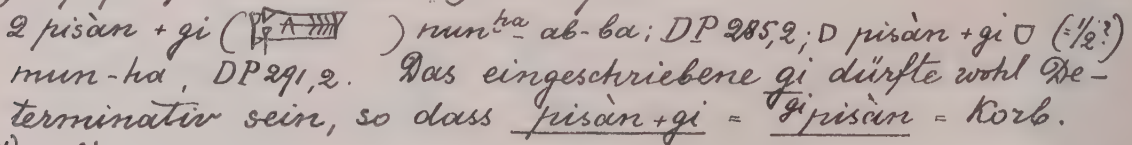 2 pisàn + gi ( ) nun^ḫa ab-ba; DP 285,2; D pisàn + gi ▽ (=1/2?)
mun-ḫa, DP 291,2. Das eingeschriebene gi dürfte wohl De-
terminativ sein, so dass pisàn+gi = ^gi pisàn = Korb.